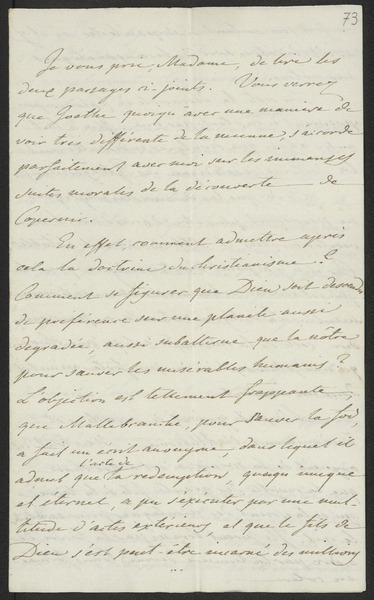 73
Je vous prie, Madame, de lire les
deux passages ci-joints. Vous verrez
que Goethe quoiqu'avec une manière de
voir très différente de la mienne s'accorde
parfaitement avec moi sur les immenses
suites morales de la découverte de
Copernic.
En effet, comment admettre après
cela la doctrine du christianisme ?
Comment se figurer que Dieu soit descendu
de préférence sur une planète aussi
dégradée, aussi subalterne que la nôtre
pour sauver les misérables humains ?
L'objection est tellement frappante,
que Mallebranche, pour sauver la foi,
a fait un écrit anonyme, dans lequel il
l'acte de
admet que la rédemption, quoiqu' unique
et éternel, a pu s'exécuter par une mul-
titude d'actes extérieurs, et que le fils de
Dieu s'est peut-être incarné des millions
...